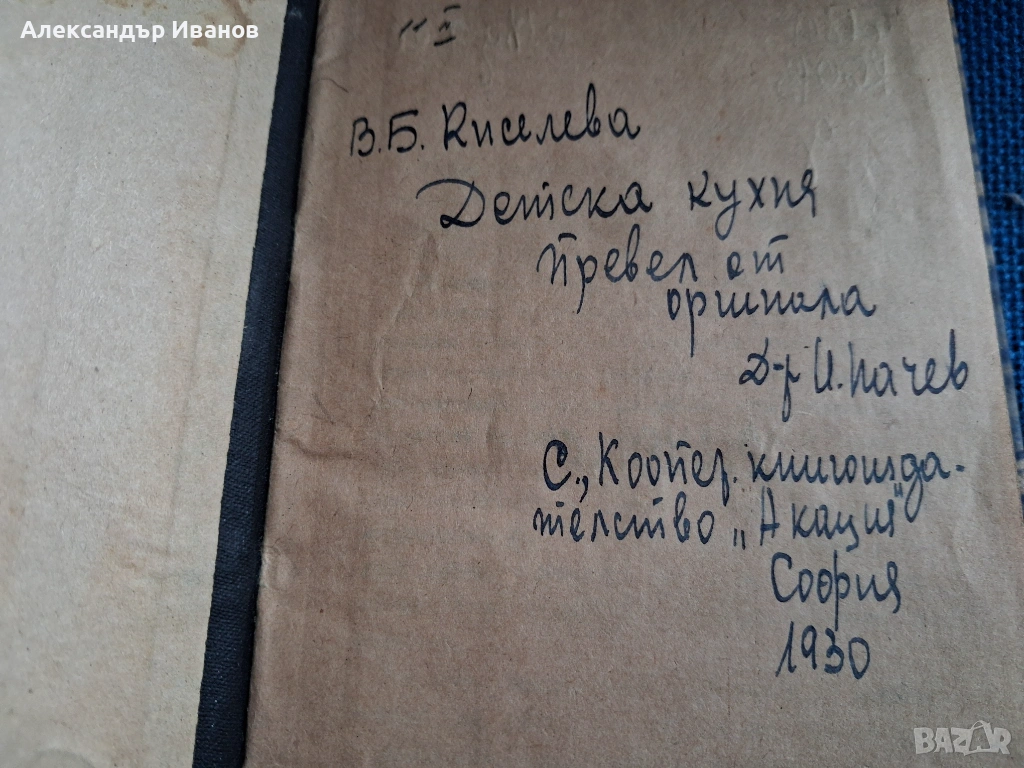 Александър Иванов
В.Б. Киселева
Детска кухня
превел от
оригинала
Д-р И. Начев
С., Коопер. книгоизда-
телство „Акация"
София
1930
BAZAR